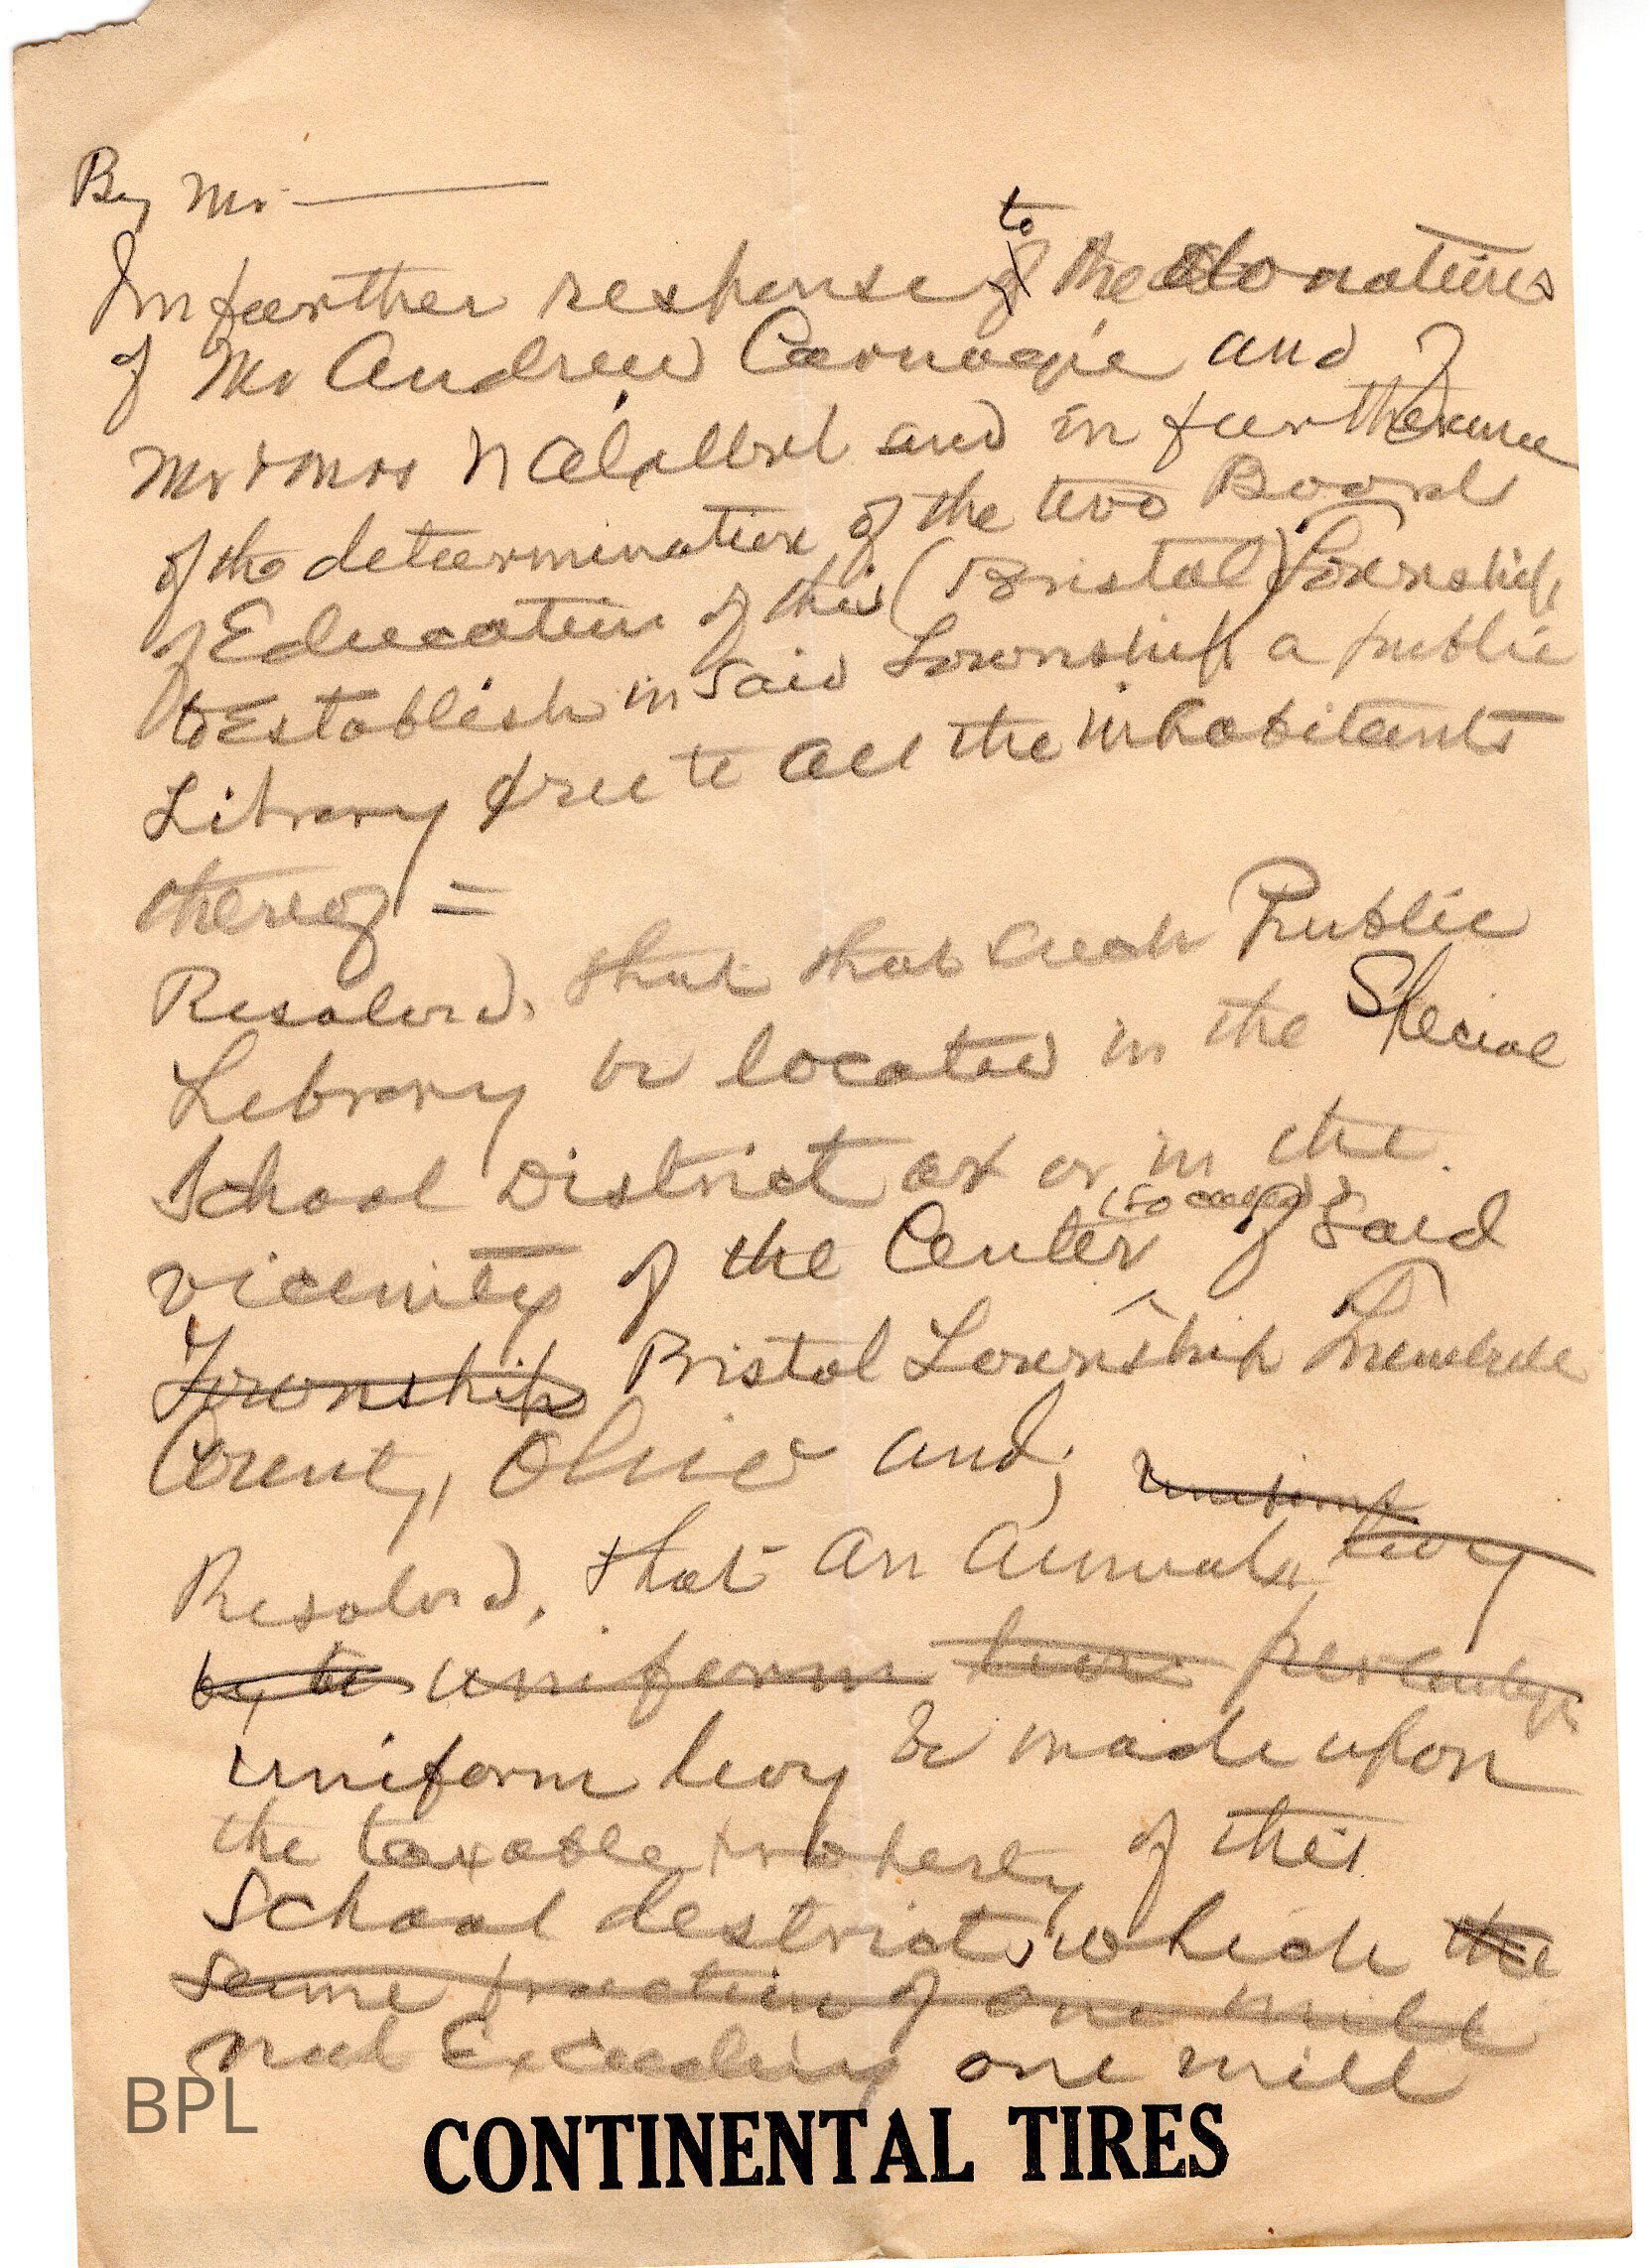 By Mr. ———
to
In further response of the donations
of Mr Andrew Carnagie and of
Mr & Mrs N A and in furtherance
of the determination of the two Boards
of Education of this (Bristol) Township
to Establish in said Township a public
Library free to all the inhabitants
thereof =
Resolved, that that such Public
Library be located in the Special
School District or or in the
(so called)
vicinity of the Center of said
Township Bristol Township Trumbull
County, Ohio and;
uniform
Resolved, that an annual levy
by be uniform levy percentage
uniform levy be made upon
the taxable property of this
School district, which the
same fraction of one mill
not Exceeding one mill
BPL
CONTINENTAL TIRES